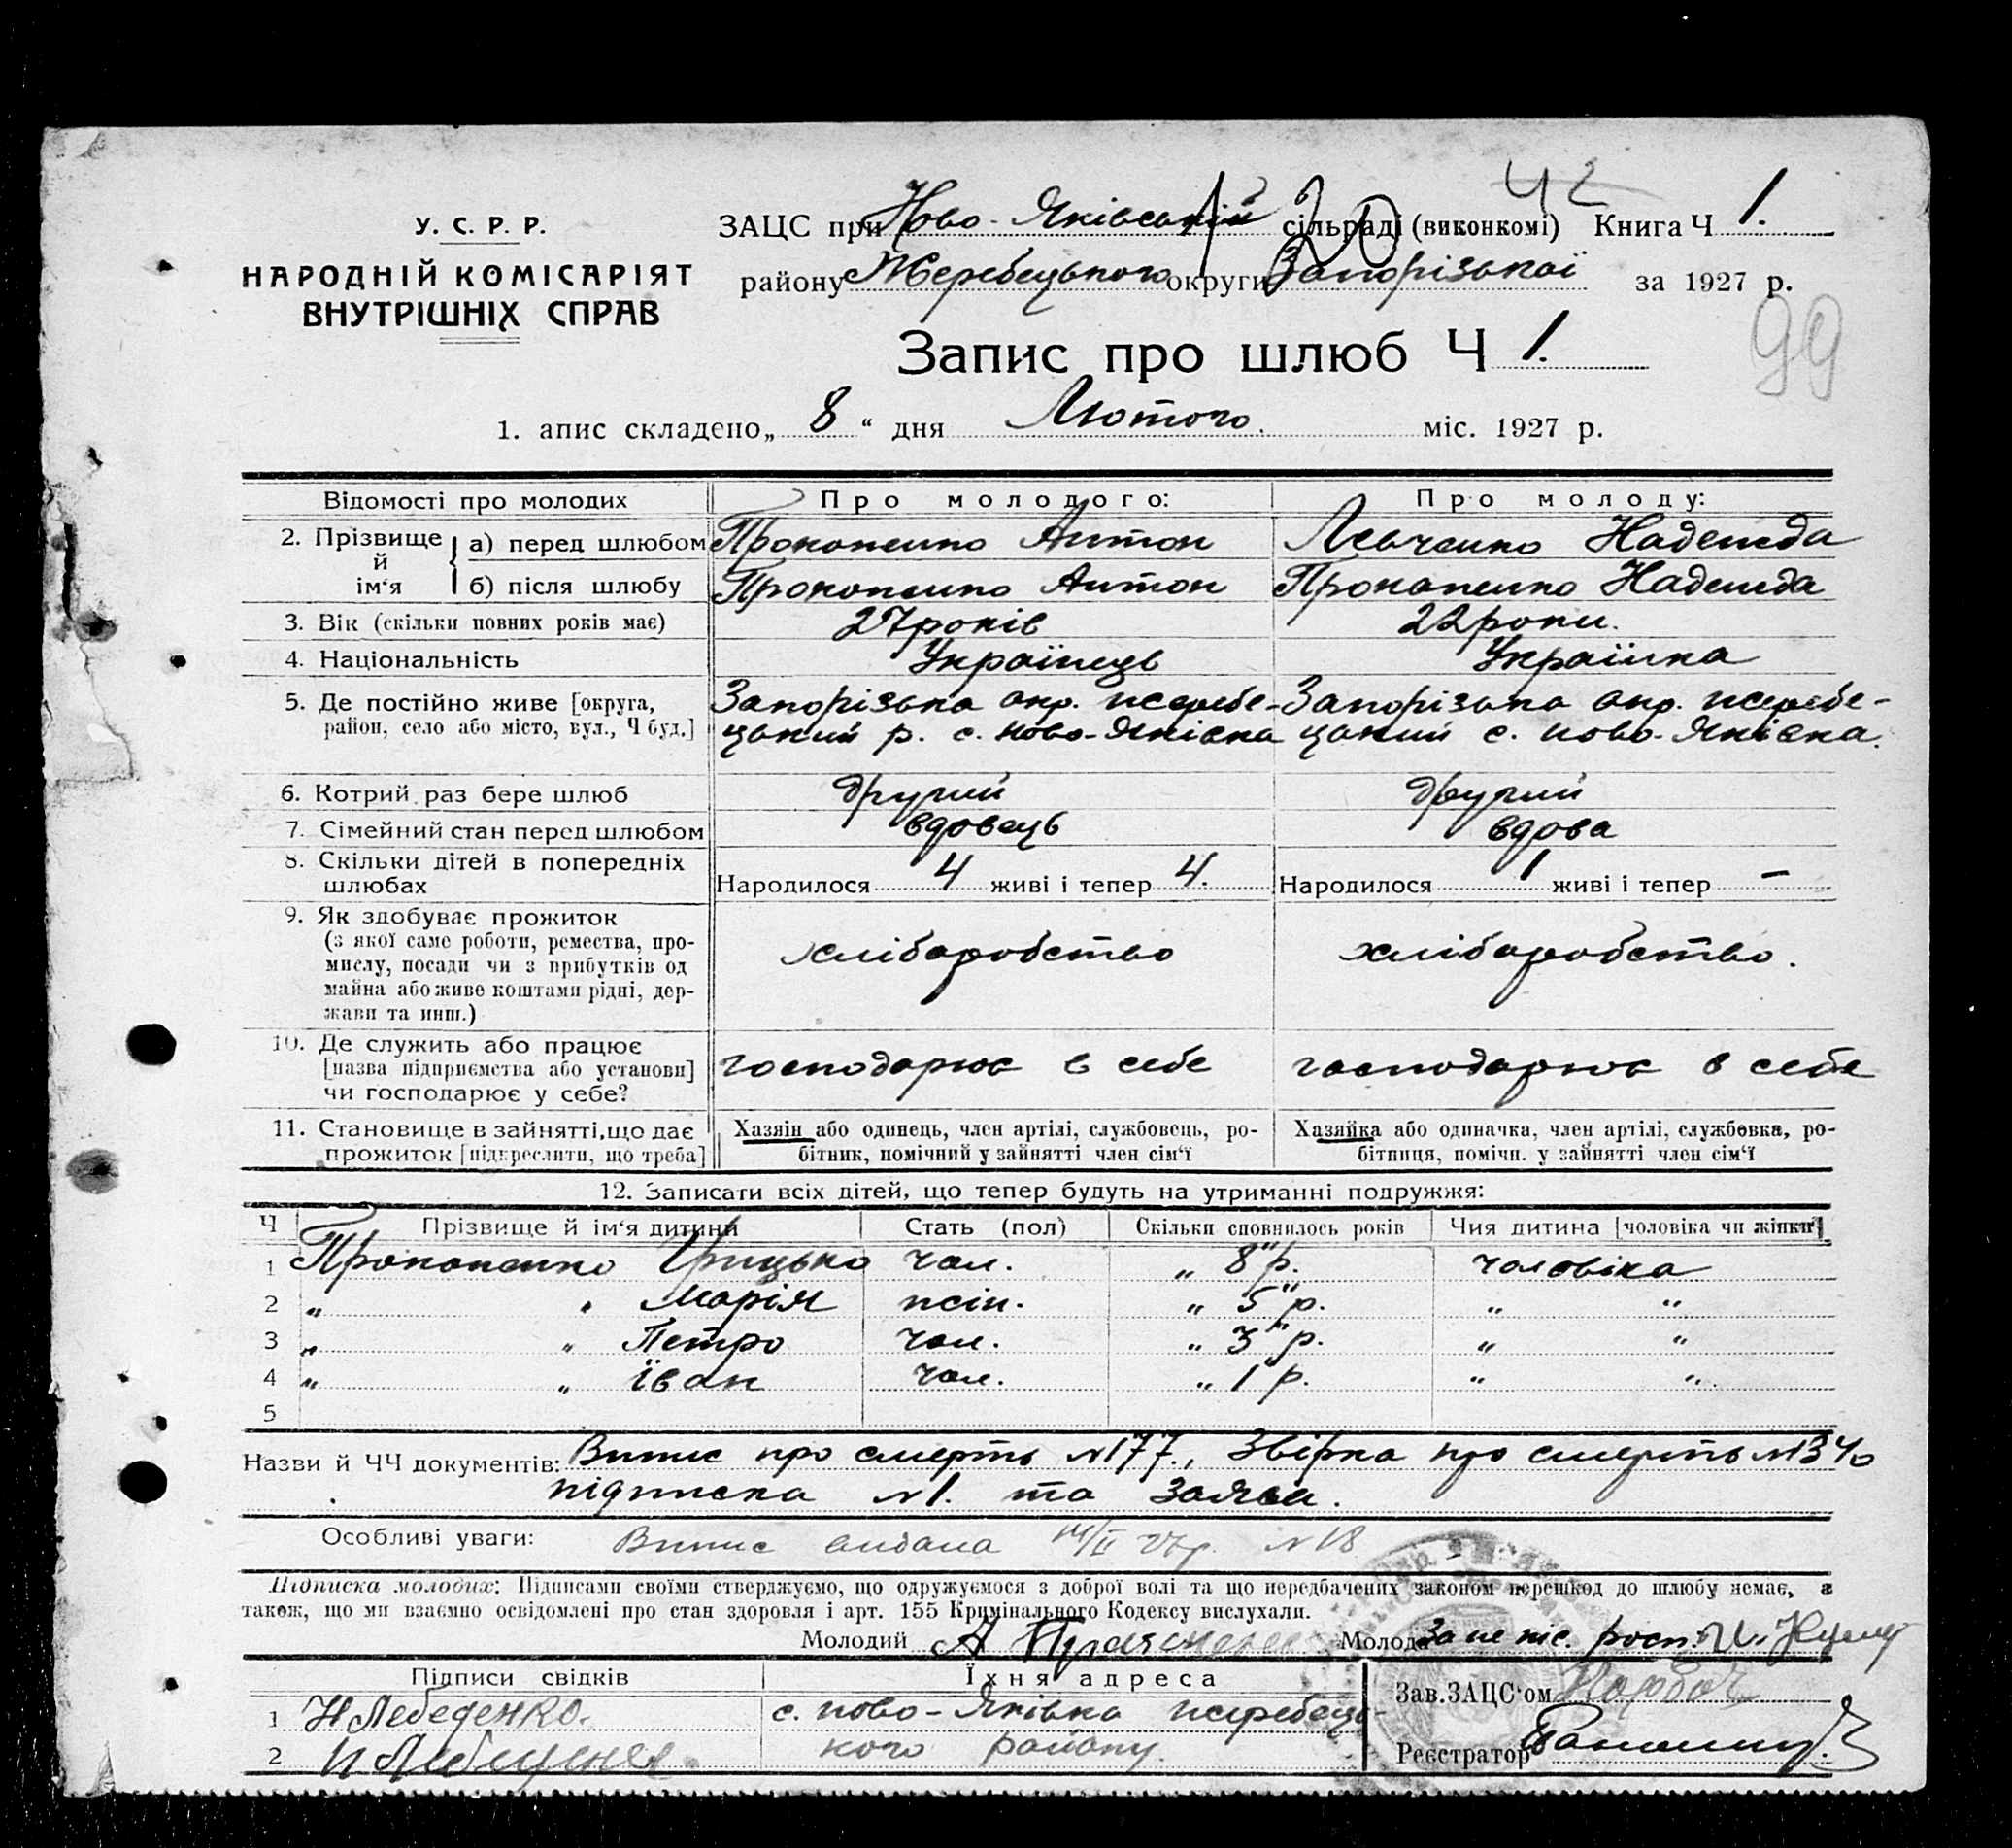 42
У. С. Р. Р.
НАРОДНІЙ КОМІСАРІЯТ
ВНУТРІШНІХ СПРАВ
ЗАЦС при Ново-Яківській сільраді (виконкомі) Книга Ч 1.
району Жеребецького округи Запорізької за 1927 р.
99
Запис про шлюб Ч 1.
1. апис складено „ 8 “ дня Лютого. міс. 1927 р.
Відомості про молодих Про молодого: Про молоду:
2. Прізвище й ім‘я а) перед шлюбом Прокопенко Антон Левченко Надежда
б) після шлюбу Прокопенко Антон Прокопенко Надежда
3. Вік (скільки повних років має) 27 років 22 роки.
4. Національність Українець Українка
5. Де постійно живе [округа, район, село або місто, вул., Ч буд.] Запорізька окр. жеребе-
цький р. с. Ново-Яківка
Запорізька окр. жеребе-
цький с. Ново-Яківка.
6. Котрий раз бере шлюб другий другий
7. Сімейний стан перед шлюбом вдовець вдова
8. Скільки дітей в попередніх
шлюбах Народилося 4 живі і тепер 4. Народилося 1 живі і тепер –
9. Як здобуває прожиток
(з якої саме роботи, ремества, про-
мислу, посади чи з прибутків од
майна або живе коштами рідні, дер-
жави та инш.)
хліборобство хліборобство.
10. Де служить або працює
[назва підприємства або установи]
чи господарює у себе?
господарює в себе господарює в себе
11. Становище в зайнятті, що дає
прожиток [підкреслити, що треба]
Хазяін або одинець, член артілі, службовець, ро-
бітник, помічний у зайнятті член сім‘ї
Хазяйка або одиначка, член артілі, службовка, ро-
бітниця, помічн. у зайнятті член сім‘ї
12. Записати всіх дітей, що тепер будуть на утриманні подружжя:
Ч Прізвище й ім‘я дитини Стать (пол) Скільки сповнилось років Чия дитина [чоловіка чи жінки]
1 Прокопенко Грицько чол. „ 8 р. чоловіка
2 „ „ Марія жін. „ 5 р. „ „
3 „ „ Петро чол. „ 3 р. „ „
4 „ „ Їван чол. „ 1 р. „ „
5
Назви й ЧЧ документів: Випис про смерть №177., Звірка про смерть №1340
підписка №1. та заяви.
Особливі уваги: Випис видана 14/II 27р. №18
Підписка молодих: Підписами своїми стверджуємо, що одружуємося з доброї волі та що передбачених законом перешкод до шлюбу немає, а
також, що ми взаємно освідомлені про стан здоровля і арт. 155 Кримінального Кодексу вислухали.
Молодий А Молода За не пис. росп.
Підписи свідків Їхня адреса
Зав. ЗАЦС‘ом
1 Н Лебеденко. с. Ново-Яківка жеребець-
2 кого району.
Реєстратор